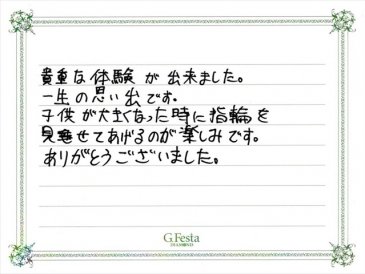 貴重な体験が出来ました。
一生の思い出です。
子供が大きくなった時に指輪を
見せてあげるのが楽しみです。
ありがとうございました。
G.Festa
DIAMOND